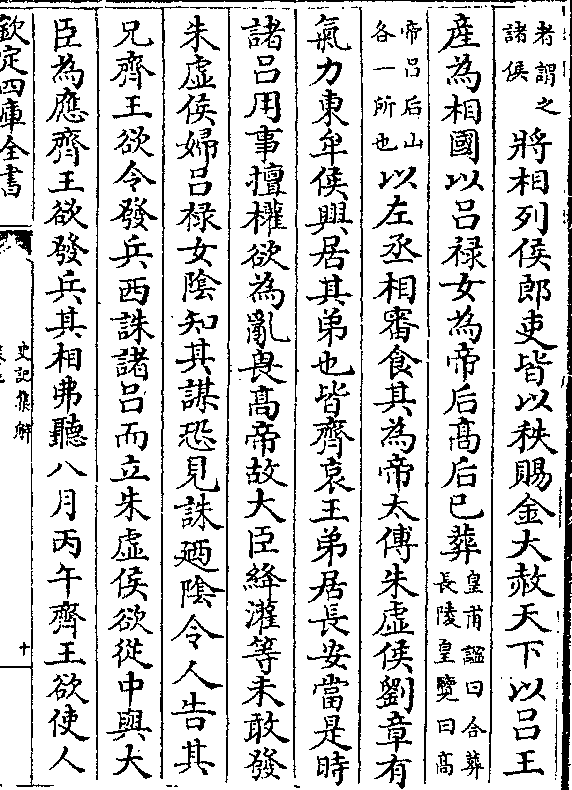 者謂之諸侯將相列侯郎吏皆以秩賜金大赦天下以呂王
產為相國以呂禄女為帝后髙后已葬皇甫謐曰合葬長陵皇覽曰髙
帝呂后山各一所也以左丞相審食其為帝太傅朱虚侯劉章有
氣力東牟侯興居其弟也皆齊哀王弟居長安當是時
諸呂用事擅權欲為亂畏髙帝故大臣絳灌等未敢發
朱虚侯婦呂禄女陰知其謀恐見誅廼陰令人告其
兄齊王欲令發兵西誅諸呂而立朱虚侯欲從中與大
臣為應齊王欲發兵其相弗聽八月丙午齊王欲使人
欽定四庫全書
史記集解
十